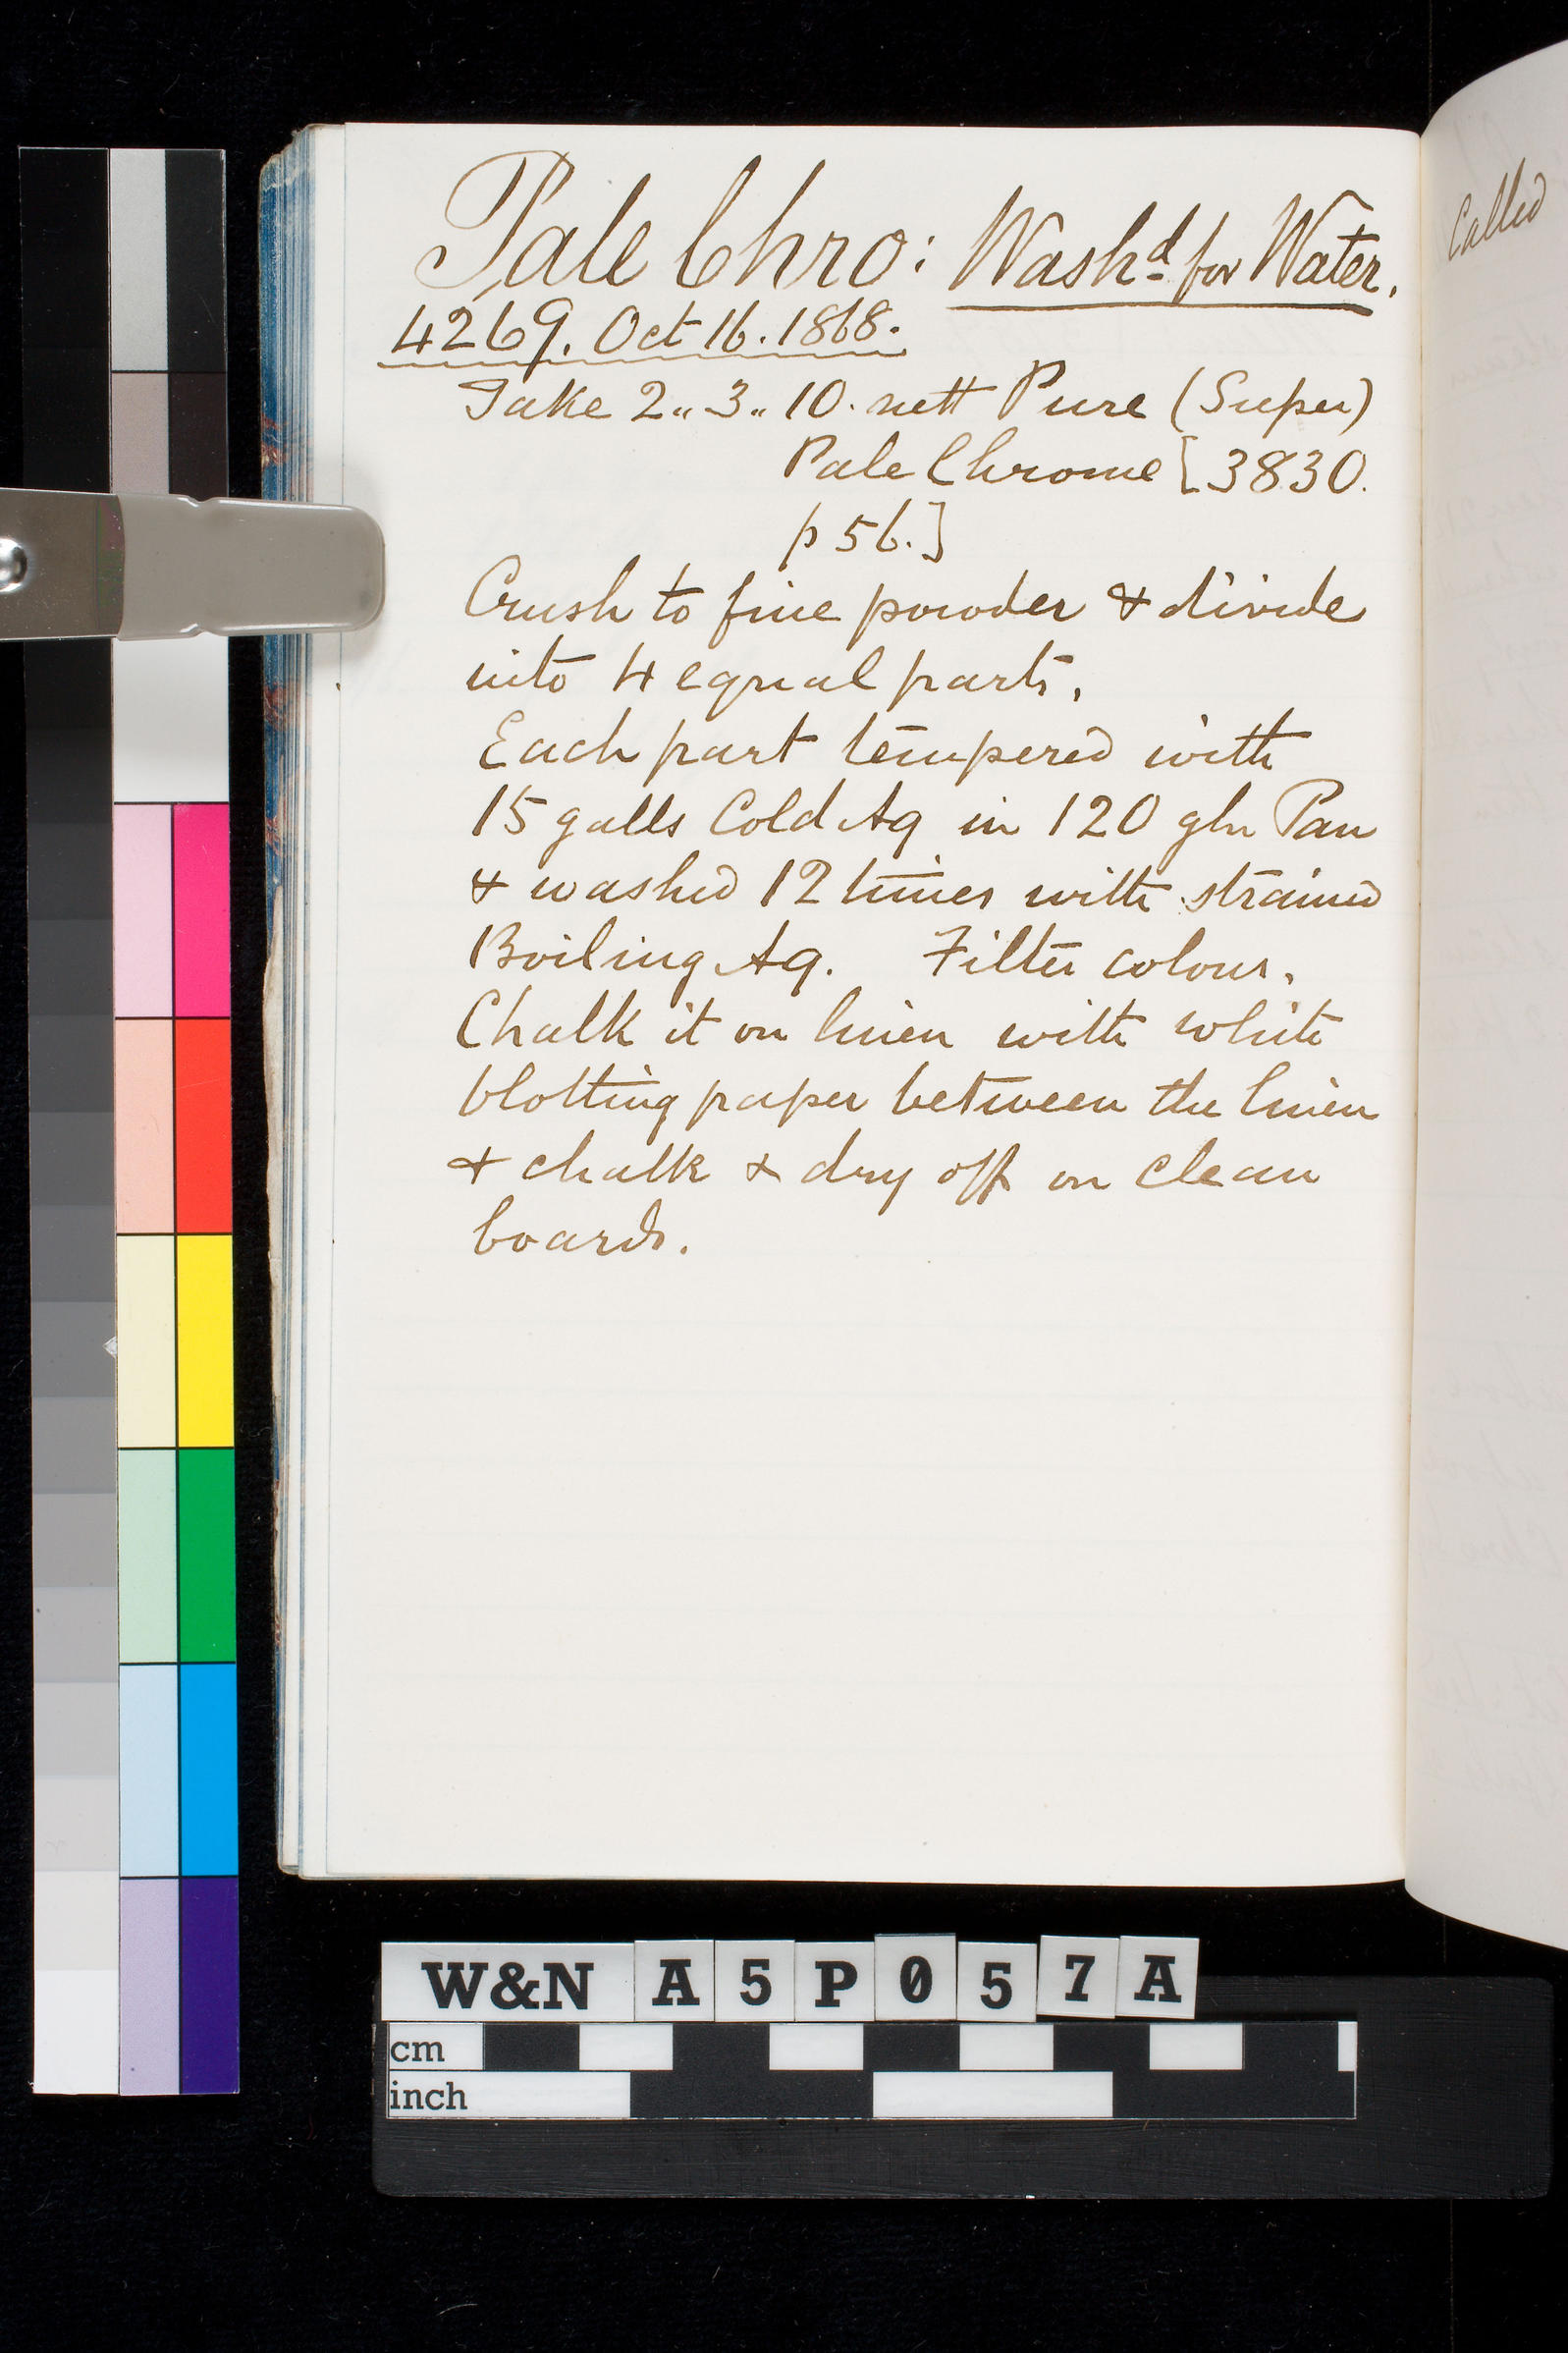 Pale Chro: Washd for Water.
4269. Oct 16. 1868.
Take 2„ 3„ 10. nett Pure (Super)
Pale Chrome [3830.
p 56.]
Crush to fine powder & divide
into 4 equal parts.
Each part tempered with
15 galls Cold Aq in 120 gln Pan
& washed 12 times with strained
Boiling Aq. Filter colour.
Chalk it on linen with white
blotting paper between the linen
& chalk & dry off on clean
boards.
Called
W&N A5P057A
cm
inch